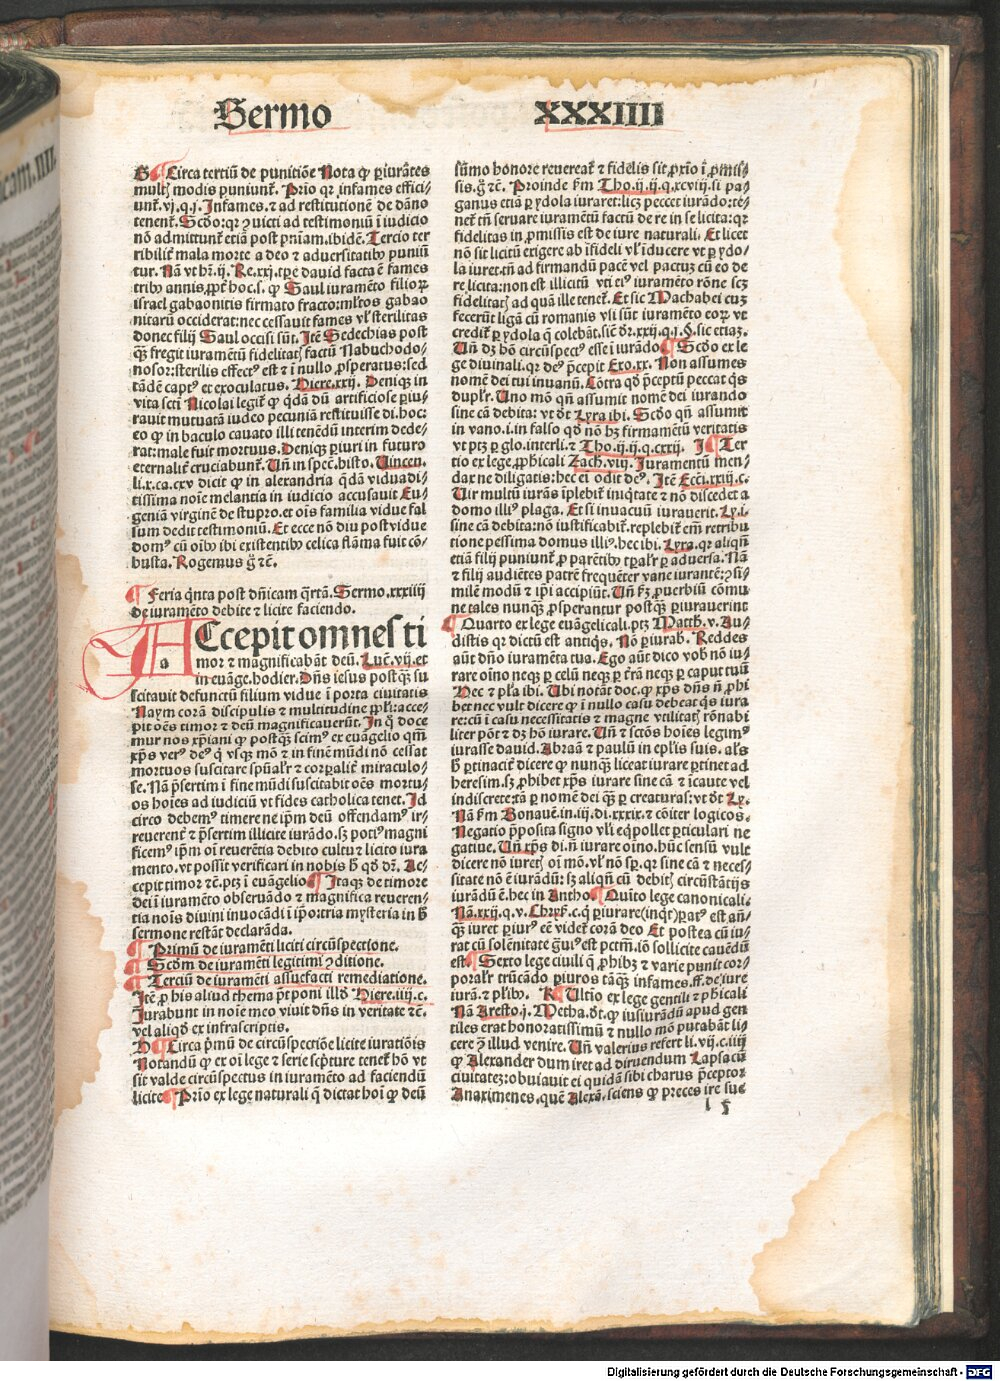 Sermo XXXIIII
G Circa tertiū de punitiōe Nota ꝙ ꝑiurātes
multꝭ modis puniunt᷑. Prīo qr infames effici⸗
unt᷑. vj. q. j. Infames. ⁊ ad restitutionē de dāno
tenent᷑. Scd̄o: qr ꝯuicti ad testimoniū ī iudicio
nō admittunt᷑ etiā post pn̄iam. ibidē. Tercio ter
ribilit᷑ mala morte a deo ⁊ aduersitatibꝰ puniū
tur. Nā vt hr̄. ij. Re. xxj. tꝑe dauid facta ē fames
tribꝰ annis, ꝓpt᷑ hoc. s. ꝙ Saul iuramēto filioꝝ
israel gabaonitis firmato fracto: ml̄tos gabao
nitarū occiderat: nec cessauit fames vl̓ sterilitas
donec filij Saul occisi sūt. Itē Sedechias post
qꝫ fregit iuramētū fidelitatꝭ factū Nabuchodo⸗
nosor: sterilis effectꝰ est ⁊ ī nullo ꝓsperatus: sed
tādē captꝰ et exoculatus. Hiere. xxij. Deniqꝫ in
vita scti Nicolai legit᷑ ꝙ qdā dū artificiose ꝑiu⸗
rauit mutuatā iudeo pecuniā restituisse di. hoc:
eo ꝙ in baculo cauato illi tenēdū interim dede⸗
rat: male fuit mortuus. Deniqꝫ ꝑiuri in futuro
eternalit᷑ cruciabunt᷑. Vn̄ in specē. histo. Vincen.
li. x. ca. cxv dicit ꝙ in alexandria qdā vidua di⸗
tissima noīe melantia in iudicio accusauit Eu⸗
geniā virginē de stupro. et oīs familia vidue fal
sum dedit testimoniū. Et ecce nō diu post vidue
domꝰ cū oībꝰ ibi existentibꝰ celica flāma fuit cō⸗
busta. Rogemus g̊ ⁊c̄.
¶ Feria qnta post dn̄icam qrtā. Sermo. xxxiiij
de iuramēto debite ⁊ licite faciendo.
ACcepit omnes ti
a mor ⁊ magnificabāt deū. Luc̄. vij. et
in euāge. hodier. Dn̄s iesus postqꝫ su
scitauit defunctū filium vidue ī porta ciuitatis
Naym corā discipulis ⁊ multitudine ppl̓i: acce⸗
pit oēs timor ⁊ deū magnificauerūt. In q̊ doce
mur nos xp̄iani ꝙ postqꝫ scimꝰ ex euāgelio qm̄
xp̄s verꝰ deꝰ q vsqꝫ mō ⁊ in finē mūdi nō cessat
mortuos suscitare spūal̓r ⁊ corꝑalit᷑ miraculo⸗
se. Nā p̄sertim ī fine mūdi suscitabit oēs mortu⸗
os hoīes ad iudiciū vt fides catholica tenet. Id
circo debemꝰ timere ne ip̄m deū offendamꝰ ir⸗
reuerent᷑ ⁊ p̄sertim illicite iurādo. sꝫ potiꝰ magni
ficemꝰ ip̄m oī reuerētia debito cultu ⁊ licito iura
mento. vt possit verificari in nobis h̓ qd̓ dr̄. Ac⸗
cepit timor ⁊c̄. ptꝫ ī euāgelio ¶ Itaqꝫ de timore
dei ī iuramēto obseruādo ⁊ magnifica reueren⸗
tia noīs diuini inuocādi ī ip̄o tria mysteria in h̓
sermone restāt declarāda.
¶ Primū de iuramēti liciti circūspectione.
¶ Scd̄m de iuramēti legitimi ꝯditione.
¶ Terciū de iuramēti assuefacti remediatione.
Itē ꝓ his aliud thema p̄t poni illd̓ Hiere. iiij. c.
Iurabunt in noīe meo viuit dn̄s in veritate ⁊c̄.
vel aliqd̓ ex infrascriptis.
H ¶ Circa pͥmū de circūspectiōe licite iuratiōis
Notandū ꝙ et oī lege ⁊ serie scp̄ture tenet᷑ hō vt
sit valde circūspectus in iuramēto ad faciendū
licite ¶ Prīo ex lege naturali q̄ dictat hoī ꝙ deū
sūmo honore reuereat᷑ ⁊ fidelis sit ꝓxīo ī ꝓmis⸗
sis. g̊ ⁊c̄. Proinde s̄m Tho. ij. ij. q. xcviij. si pa⸗
ganus etiā ꝑ ydola iuraret: licꝫ peccet iurādo: te⸗
net᷑ tn̄ seruare iuramētū factū de re in se licita: qr
fidelitas in ꝓmissis est de iure naturali. Et licet
nō sit licitū exigere ab īfideli vl̓ īducere vt ꝑ ydo⸗
la iuret. tn̄ ad firmandū pacē vel pactuꝫ cū eo de
re licita: non est illicitū vti eiꝰ iuramēto rōne scꝫ
fidelitatꝭ ad quā ille tenet᷑. Et sic Machabei cuꝫ
fecerūt ligā cū romanis vsi sūt iuramēto eoꝝ vt
credit᷑ ꝑ ydola q̄ colebāt. sic̄ dr̄. xxij. q. j. §. sic etiaꝫ.
Vn̄ dꝫ hō circūspectꝰ esse ī iurādo ¶ Scd̄o ex le
ge diuinali. qr deꝰ p̄cepit Exo. xx. Non assumes
nomē dei tui in uanū. Cōtra qd̓ p̄ceptū peccat qs
dupl̓r. Uno mō qn̄ assumit nomē dei iurando
sine cā debita: vt dt̓ Lyra ibi. Scd̄o qn̄ assumit
in vano. i. in falso qd̓ nō hꝫ firmamētū veritatis
vt ptꝫ ꝑ glo. interli. ⁊ Tho. ij. ij. q. cxxij. I ¶ Ter
tio ex lege, ꝓphicali Zach. viij. Iuramentū men⸗
dax ne diligatis: hec eī odit deꝰ. Itē Ecci. xxiij. c.
Vir multū iurās īplebit᷑ iniqtate ⁊ nō discedet a
domo illiꝰ plaga. Et si in uacuū iurauerit. Ly. i.
sine cā debita: nō iustificabit᷑. replebit᷑ em̄ retribu
tione pessima domus illiꝰ. hec ibi. Lyra. qr aliqn̄
etiā filij puniunt᷑ ꝓ parētibꝰ tꝑal̓r ꝑ aduersa. Nā
⁊ filij audiētes patrē frequēter vane iurantē: ꝯsi⸗
milē modū ⁊ ip̄i accipiūt. Vn̄ fꝫ ꝓuerbiū cōmu
ne tales nunqꝫ ꝓsperantur postqꝫ ꝑiurauerint
¶ Quarto ex lege euāgelicali. ptꝫ Matth. v. Au⸗
distis qr dictū est antiqs. Nō ꝑiurab. Reddes
aūt dn̄o iuramēta tua. Ego aūt dico vob̓ nō iu⸗
rare oīno neqꝫ ꝑ celū neqꝫ ꝑ t᷑rā neqꝫ ꝑ caput tuū
Hec ⁊ pl̓a ibi. Ubi notāt doc. ꝙ xp̄s dn̄s n̄ ꝓhi
bet nec vult dicere ꝙ ī nullo casu debeat qs iura
re: cū ī casu necessitatis ⁊ magne vtilitatꝭ rōnabi
liter pōt ⁊ dꝫ hō iurare. Vn̄ ⁊ sctōs hoīes legimꝰ
iurasse dauid. Abraā ⁊ paulū in ep̄l̓is suis. al̓s
h̓ ꝑtinacit᷑ dicere ꝙ nunqꝫ liceat iurare ꝑtinet ad
heresim. sꝫ ꝓhibet xp̄s iurare sine cā ⁊ īcaute vel
indiscrete: tā ꝑ nomē dei qꝫ ꝑ creaturas: vt dt̓ Ly.
Nā s̄m Bonauē. in. iij. di. xxxix. ⁊ cōiter logicos.
Negatio p̄posita signo vl̓i eq̄pollet ꝑticulari ne
gatiue. Vn̄ xp̄s di. n̄ iurare oīno. hūc sensū vult
dicere nō iuretꝭ oī mō. vl̓ nō sꝑ. qr sine cā ⁊ neces⸗
sitate nō ē iurādū: sꝫ aliqn̄ cū debitꝭ circūstātijs
iurādū ē. hec in Antho. ¶ Quīto lege canonicali.
Nā. xxij. q. v. Chryf. c. q ꝑiurare (inqt) ꝑat᷑ est añ⸗
qꝫ iuret ꝑiurꝰ eē videt᷑ corā deo Et postea cū iu⸗
rat cū solēnitate g̊uiꝰ est pctm̄. iō sollicite cauēdū
est. ¶ Sexto lege ciuili q̄ ꝓhibꝫ ⁊ varie punit cor⸗
poral̓r trūcādo ꝑiuros tāqꝫ infames. ff. de iure
iurā. ⁊ pl̓ibꝰ. K ¶ Vltio ex lege gentili ⁊ phicali
Nā Aresto. j. Metha. dt̓. ꝙ iusiurādū apud gen
tiles erat honoratissimū ⁊ nullo mō putabāt li⸗
cere ꝯ illud venire. Vn̄ valerius refert li. vij. c. iiij
ꝙ Alexander dum iret ad diruendum Lapsacū
ciuitateꝫ: obuiauit ei quidā sibi charus p̄ceptor
Anaximenes, quē Alexā. sciens ꝙ preces ire sue
l 5
Digitalisierung gefördert durch die Deutsche Forschungsgemeinschaft - DFG